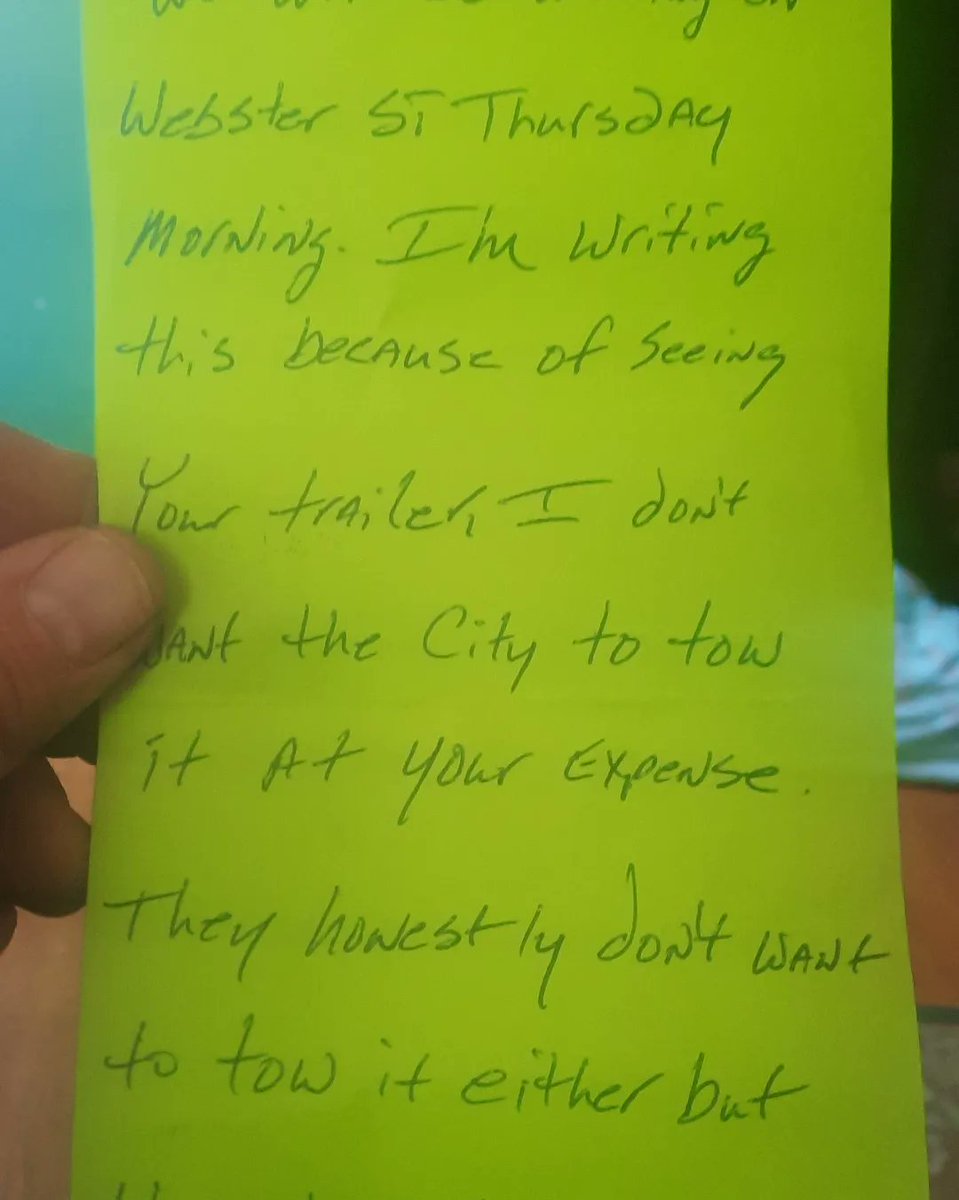 Webster ST Thursday
Morning. I'm writing
this because of seeing
Your trailer, I don't
want the City to tow
it At your Expense.
They honestly don't want
to tow it either but